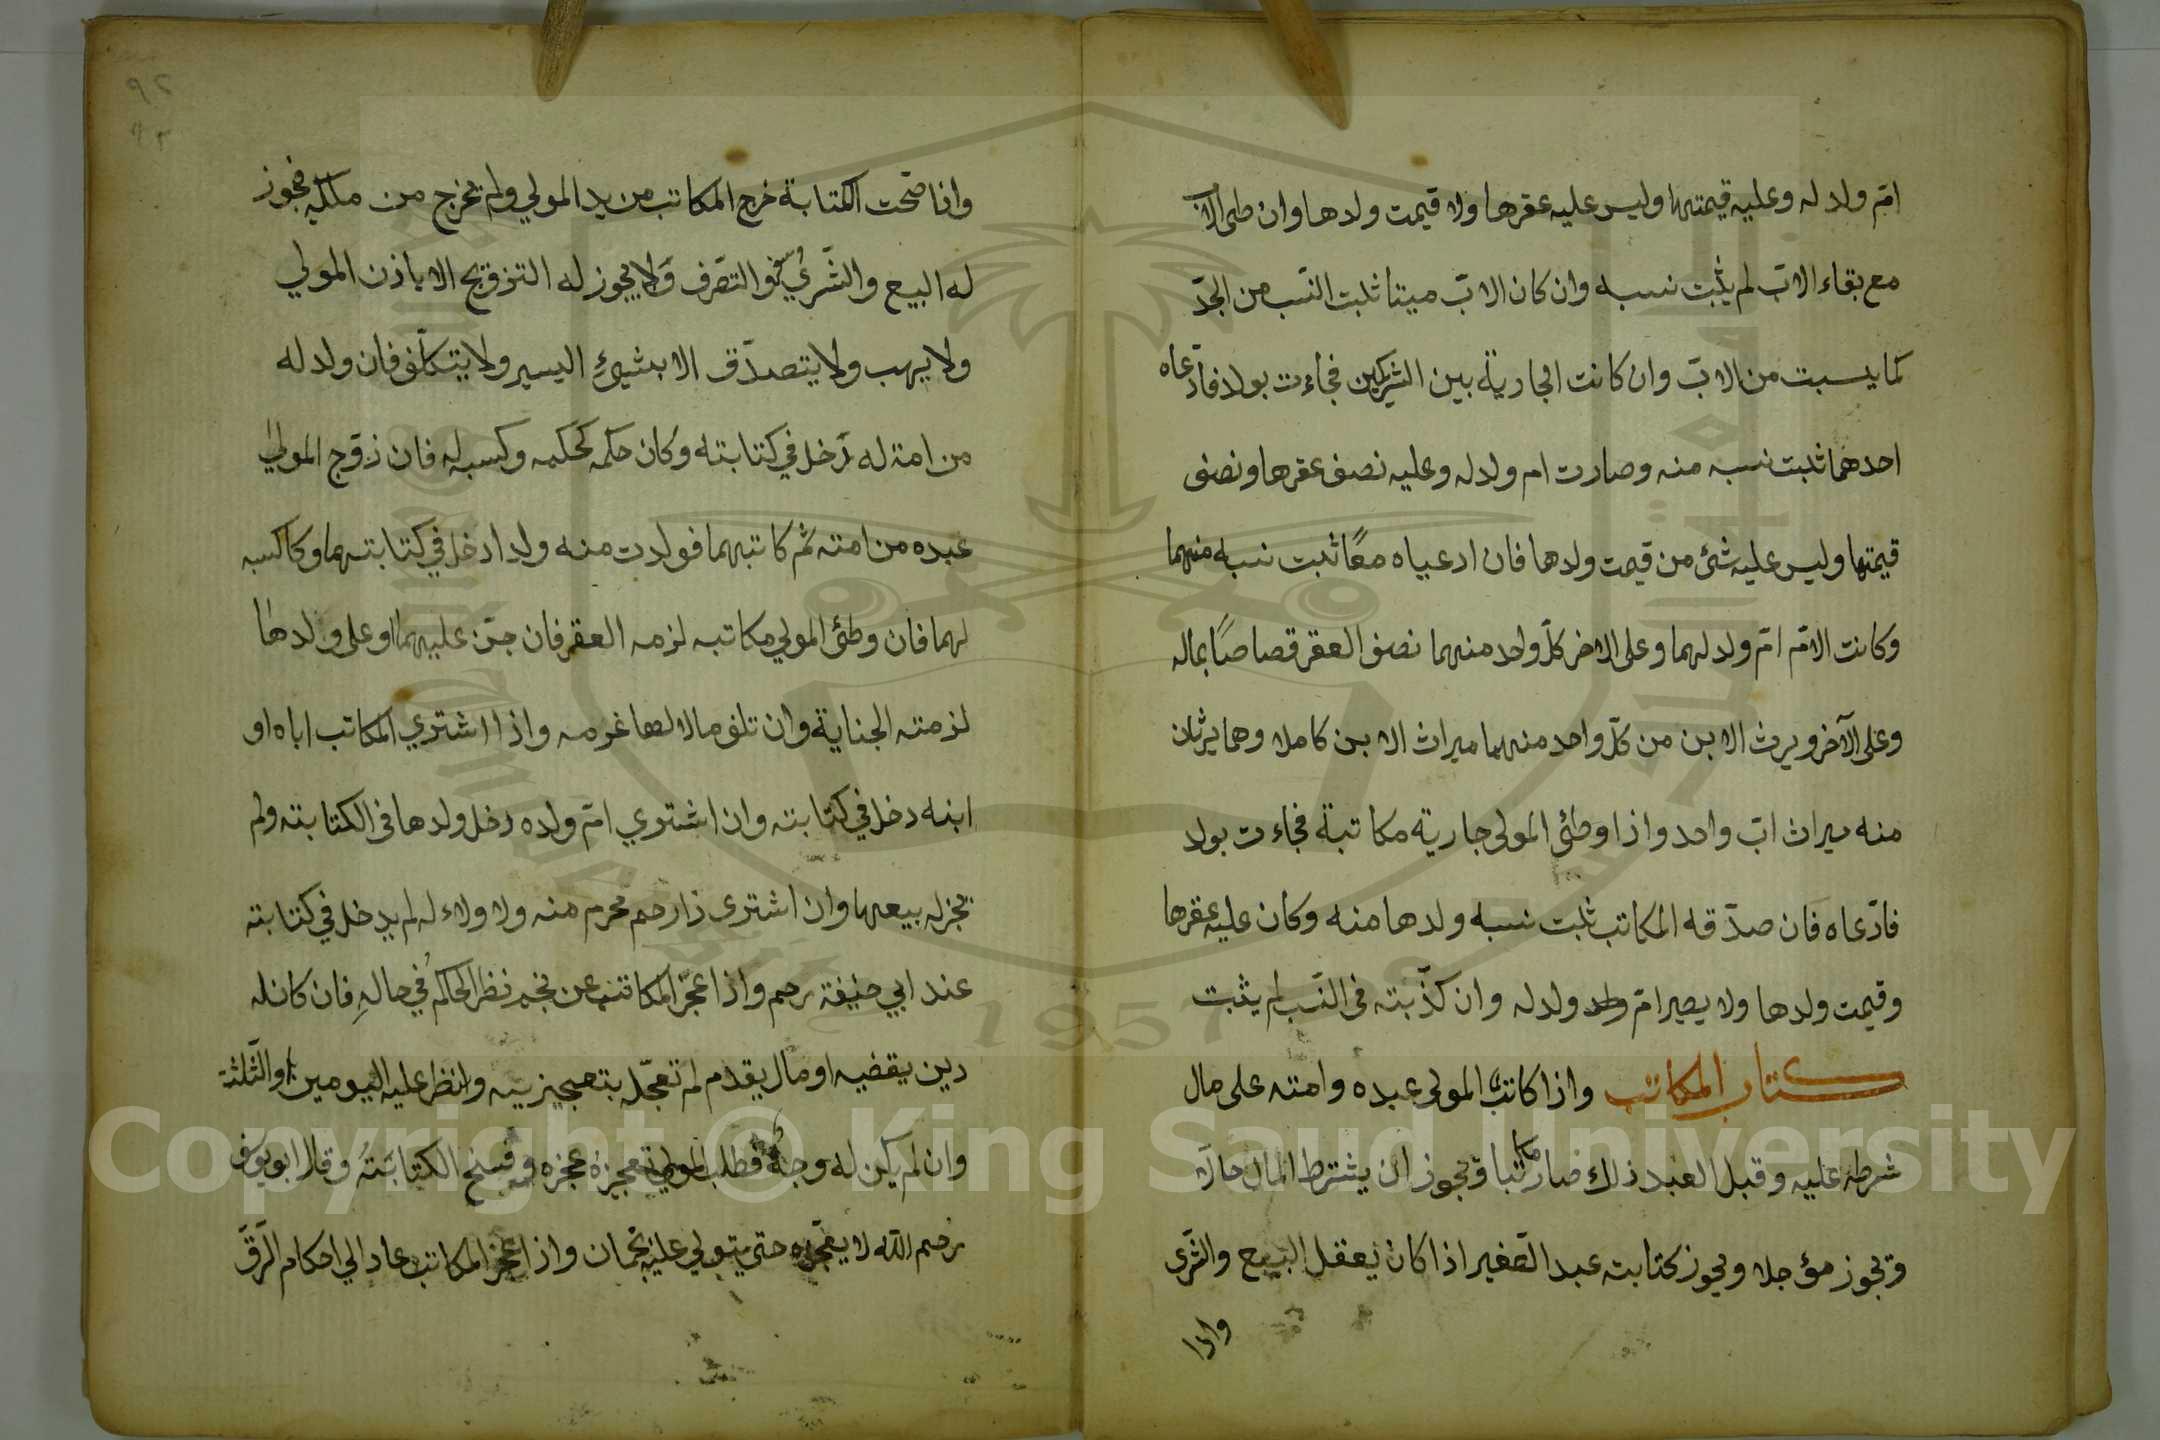 امّ ولد له وعليه قيمتها وليس عليه عقرها ولا قيمت ولدها وان طئ الاب
مع بقاء الابّ لم يثبت نسبه وان كان الابّ ميتا ثلبت النّسب من الجدّ
كما يسبت من الابّ وان كانت الجارية بين الشريكين فجاءت بولد فادّعاه
احدهما ثبت نسبه منه وصارت ام ولد له وعليه نصف عقرها ونصف
قيمتها وليس عليه شئ من قيمت ولدها فان ادعياه معًا ثبت نسبه منهما
وكانت الامّ امّ ولد لهما وعلى الاخر كلّ واحد منهما نصف العقر قصاصًا بماله
وعلى الآخر ويرث الابن من كلّ واحد منهما ميراث الابن كاملا وهما يرثان
منه ميراث ابّ واحد واذا وطئ المولى جارية مكاتبة فجاءت بولد
فادّعاه فان صدّقه المكاتب ثبت نسبه ولدها منه وكان عليه عقرها
وقيمت ولدها ولا يصير امّ ولد ولد له وان كذّبته فى النّسب لم يثبت
كتاب المكاتب واذا كاتب المولى عبده وامته على مال
شرطه عليه وقبل العبد ذلك صار مكاتبا ويجوز ان يشترط المال حالّا
ويجوز مؤجلا ويجوز كتابته عبد الصّغير اذا كان يعقل البيع والشّرى
واذا
٩٢
واذا صحّت الكتابة خرج المكاتب من يد المولي ولم يخرج من ملكه فيجوز
له البيع والشّري والسّفر والتصّرف ولا يجوز له التزويج الا باذن المولي
ولا يهب ولا يتصدّق الا بشيئ اليسير ولا يتكفّل فان ولد له
من امة له دخل في كتابته وكان حكمه كحكمه وكسبه له فان زوّج المولى
عبده من امته ثم كاتبهما فولدت منه ولدا دخل في كتابتهما وكا كسبه
لهما فان وطئ المولي مكاتبه لزمه العقر فان جنى عليهما او على ولدها
لزمته الجناية وان تلف مالا لها غرمه واذا اشتري المكاتب اباه او
ابنه دخل في كتابته وان اشتري امّ ولده دخل ولدها في الكتابته ولم
يجز له بيعها وان اشترى ذا رحم محرم منه ولا ولاء له لم يدخل في كتابته
عند ابي حنيفة رحم واذا عجّز المكاتب عن نجم نظر الحاكم في حاله فان كان له
دين يقضيه او مال يقدم لم تعجّل بتعجيزييه وانظر عليه اليومين او الثّلثة
وان لم يكن له وجهٌ فطلب المولي تعجيزه عجزه وفسخ الكتابته وقال ابو يوسف
رحم الله لا يعجّزه حتى يتولي عليه نجمان واذا عجّز المكاتب عاد الي احكام الرّقّ
Copyright © King Saud University
1957